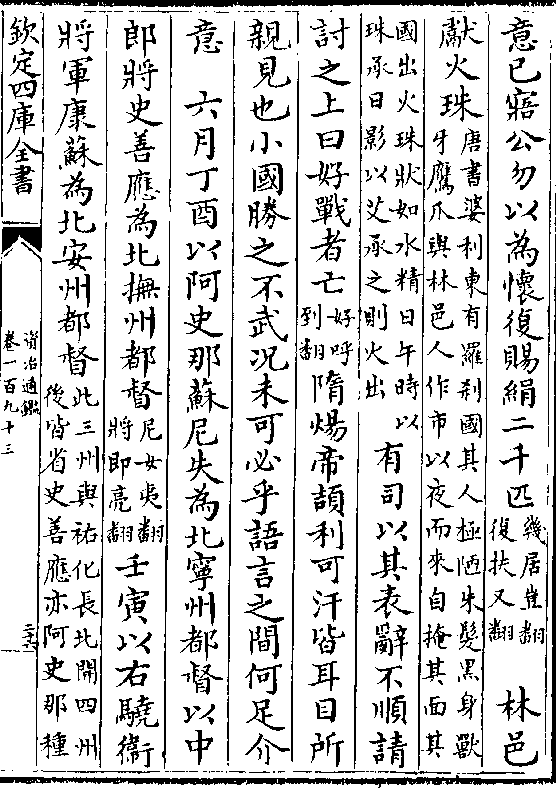 意已寤公勿以為懷復賜絹二千匹幾居豈翻復扶又翻 林邑
獻火珠唐書婆利東有羅刹國其人極陋朱髮黑身獸牙鷹爪與林邑人作市以夜而來自掩其面其
國出火珠狀如水精日午時以珠承日影以艾承之則火出 有司以其表辭不順請
討之上曰好戰者亡好呼到翻隋煬帝頡利可汗皆耳目所
親見也小國勝之不武况未可必乎語言之間何足介
意 六月丁酉以阿史那蘇尼失為北寧州都督以中
郎將史善應為北撫州都督尼女夷翻將即亮翻壬寅以右驍衞
將軍康蘇為北安州都督此三州與祐化長北開四州後皆省史善應亦阿史那種
欽定四庫全書
資治通鑑
卷一百九十三